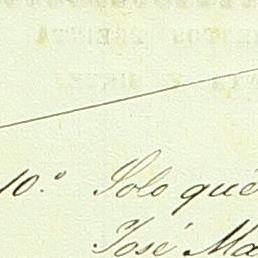 10.º Solo qué
José Ma